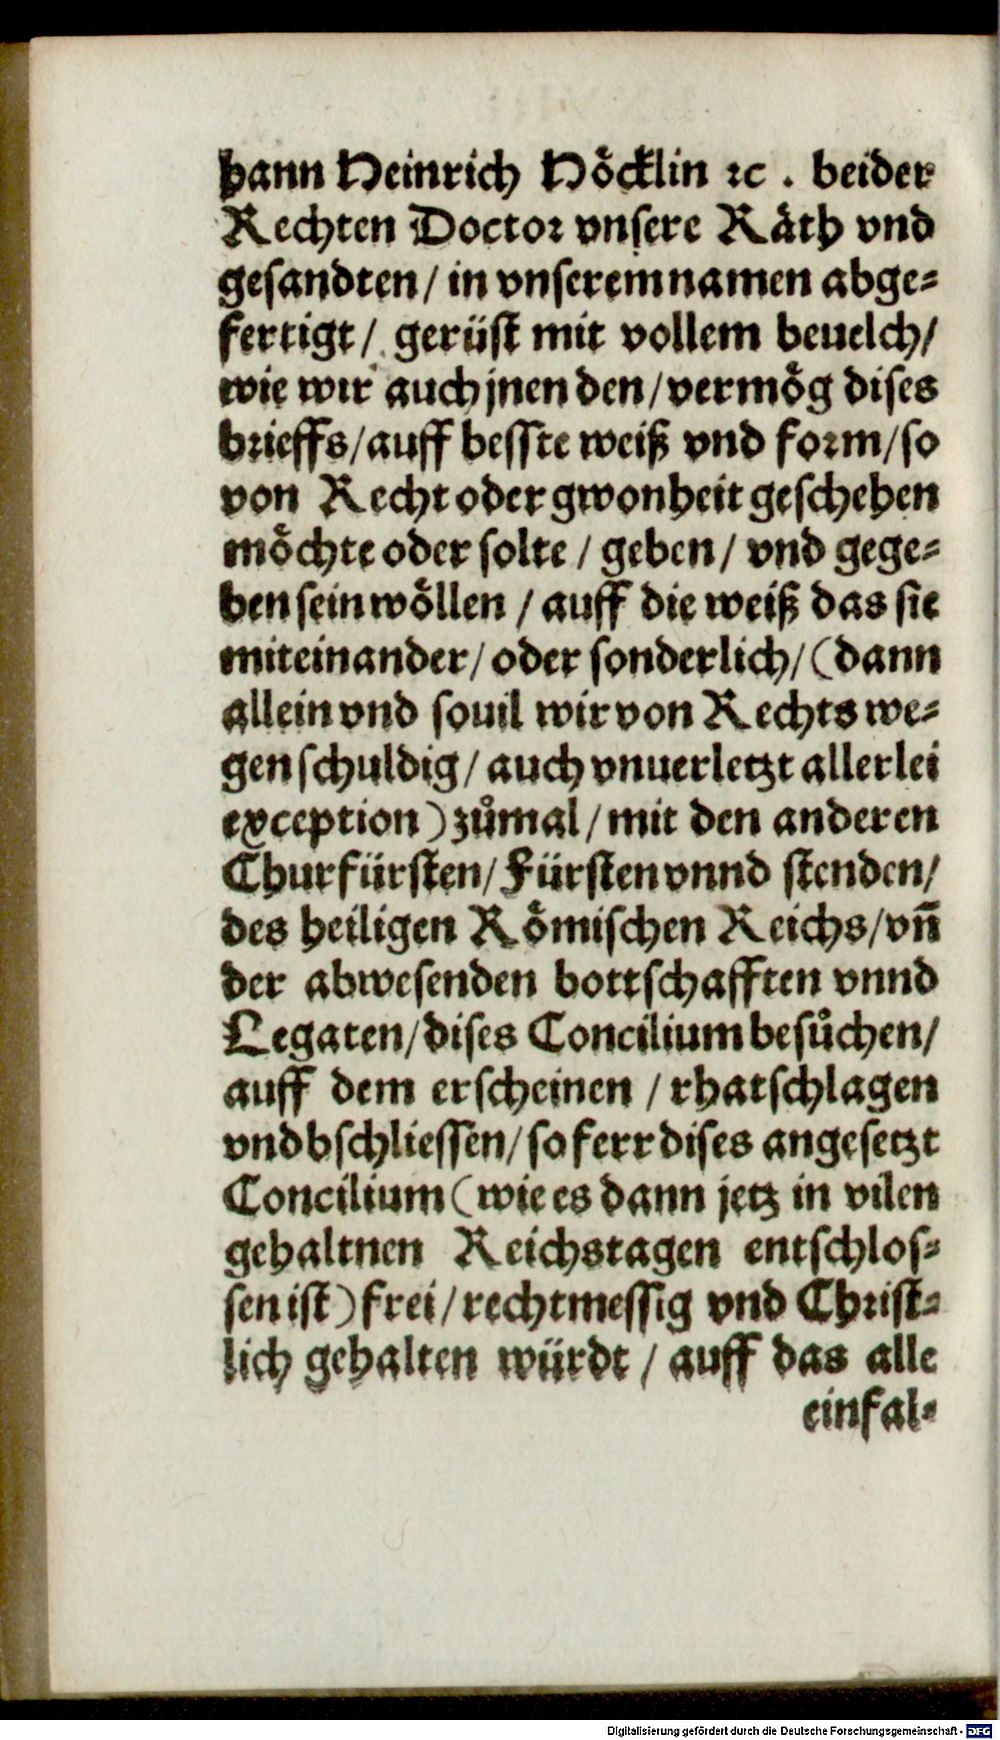 hann Heinrich Höcklin ꝛc. beider
Rechten Doctor vnsere Räth vnd
gesandten/ in vnserem namen abge⸗
fertigt/ gerüst mit vollem beuelch/
wie wir auch jnen den/ vermög dises
brieffs/ auff besste weiß vnd form/ so
von Recht oder gwonheit geschehen
möchte oder solte / geben/ vnd gege⸗
ben sein wöllen / auff die weiß das sie
miteinander/ oder sonderlich/ (dann
allein vnd souil wir von Rechts we⸗
gen schuldig/ auch vnuerletzt allerlei
exception) zůmal/ mit den anderen
Churfürsten/ Fürsten vnnd stenden/
des heiligen Römischen Reichs/ vñ
der abwesenden bottschafften vnnd
Legaten/ dises Concilium besůchen/
auff dem erscheinen / rhatschlagen
vnd bschliessen/ so ferr dises angesetzt
Concilium (wie es dann jetz in vilen
gehaltnen Reichstagen entschlos⸗
sen ist) frei/ rechtmessig vnd Christ⸗
lich gehalten würdt / auff das alle
einfal⸗
Digitalisierung gefördert durch die Deutsche Forschungsgemeinschaft - DFG